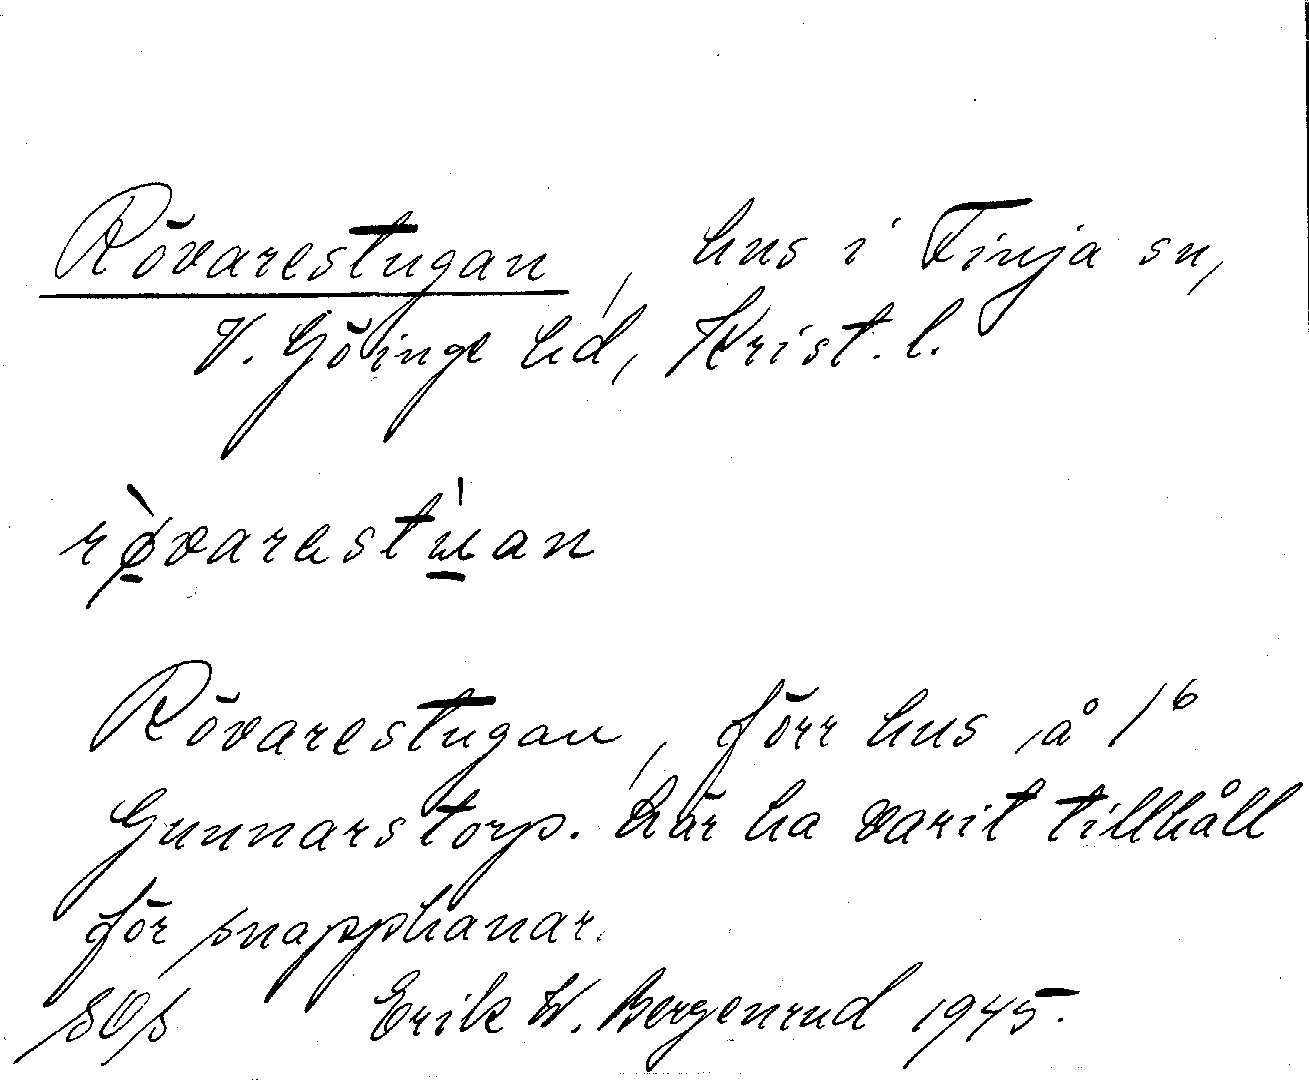 Rövarestugan, hus i Finja sn,
V. Göinge hd, Krist. l.
rø̀varestúan
Rövarestugan, förr hus å 1⁶
Gunnarstorp. Här ha varit tillhåll
för snapphanar.
Erik W. Bergenrud 1945.